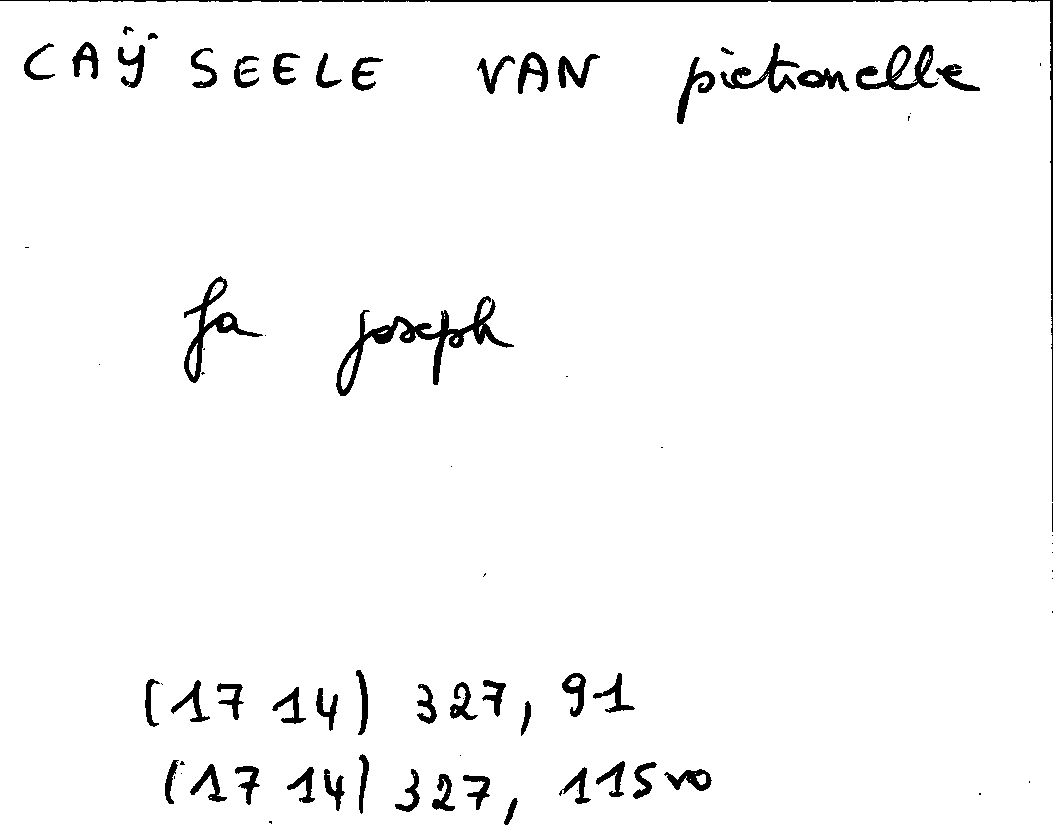 CAŸSEELE VAN pietronelle
fa joseph
(1714) 327, 91
(1714) 327, 115vo